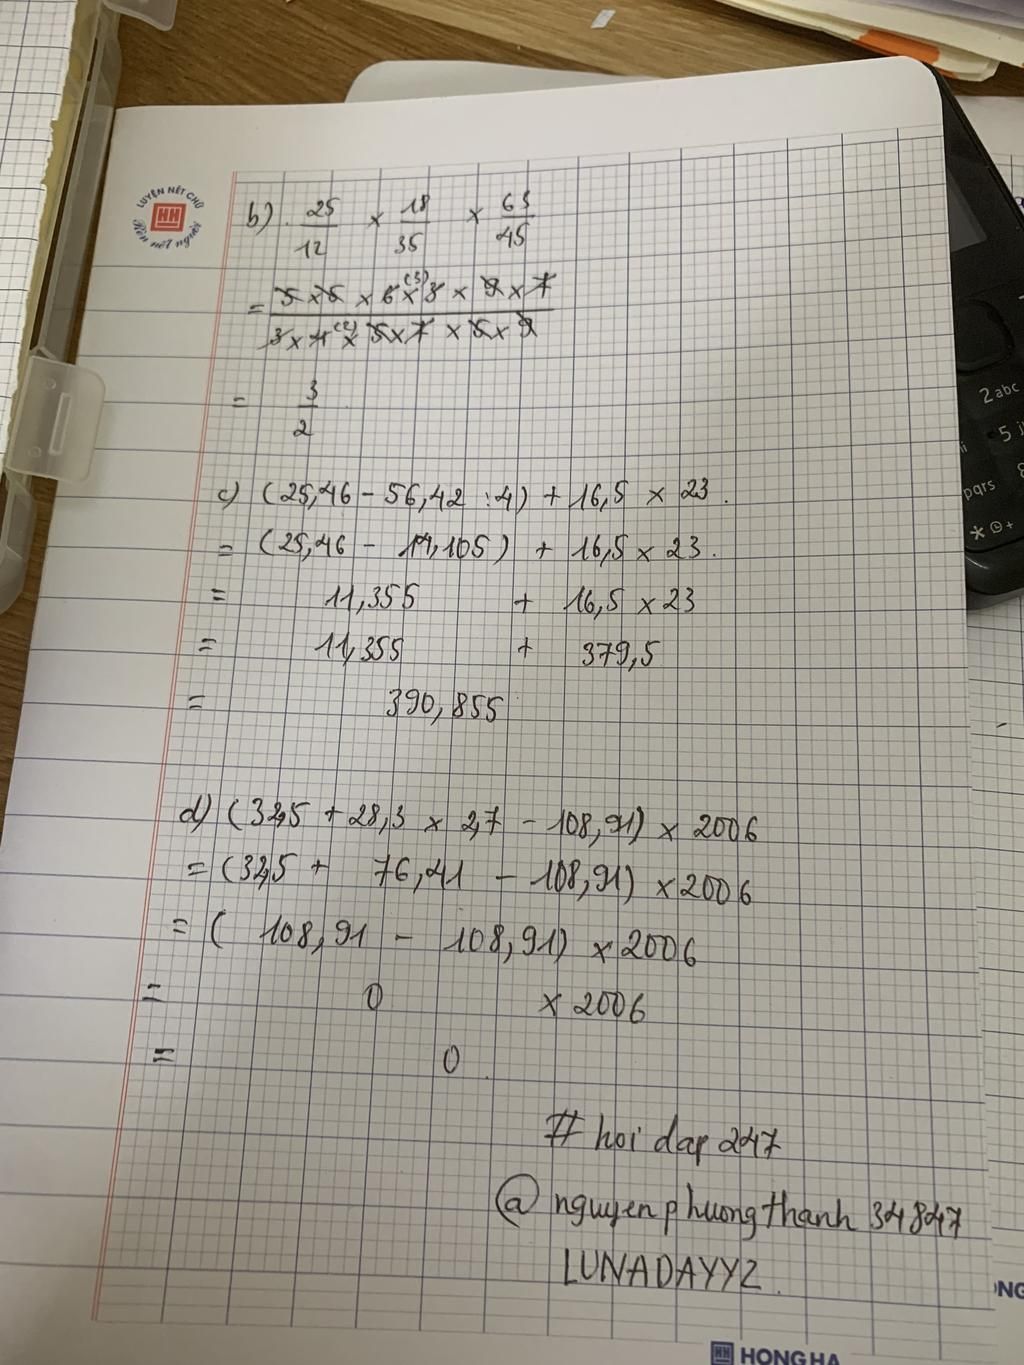 LUYỆN NÉT CHỮ
HH
Rèn nết người
b) 25/12 × 18/35 × 63/45
= 5×5 × 6×3 (3) × 9×7 / 3×4 (2) × 5×7 × 5×9
= 3/2
c) (25,46 - 56,42 : 4) + 16,5 × 23.
= (25,46 - 14,105) + 16,5 × 23.
= 11,355 + 16,5 × 23
= 11,355 + 379,5
= 390,855
d) (32,5 + 28,3 × 2,7 - 108,91) × 2006
= (32,5 + 76,41 - 108,91) × 2006
= ( 108,91 - 108,91) × 2006
= 0 × 2006
= 0
# hoi dap 247
@ nguyenphuongthanh 34847
LUNADAYYZ.
HH HONG HA
2abc
5
pqrs
8
*
+